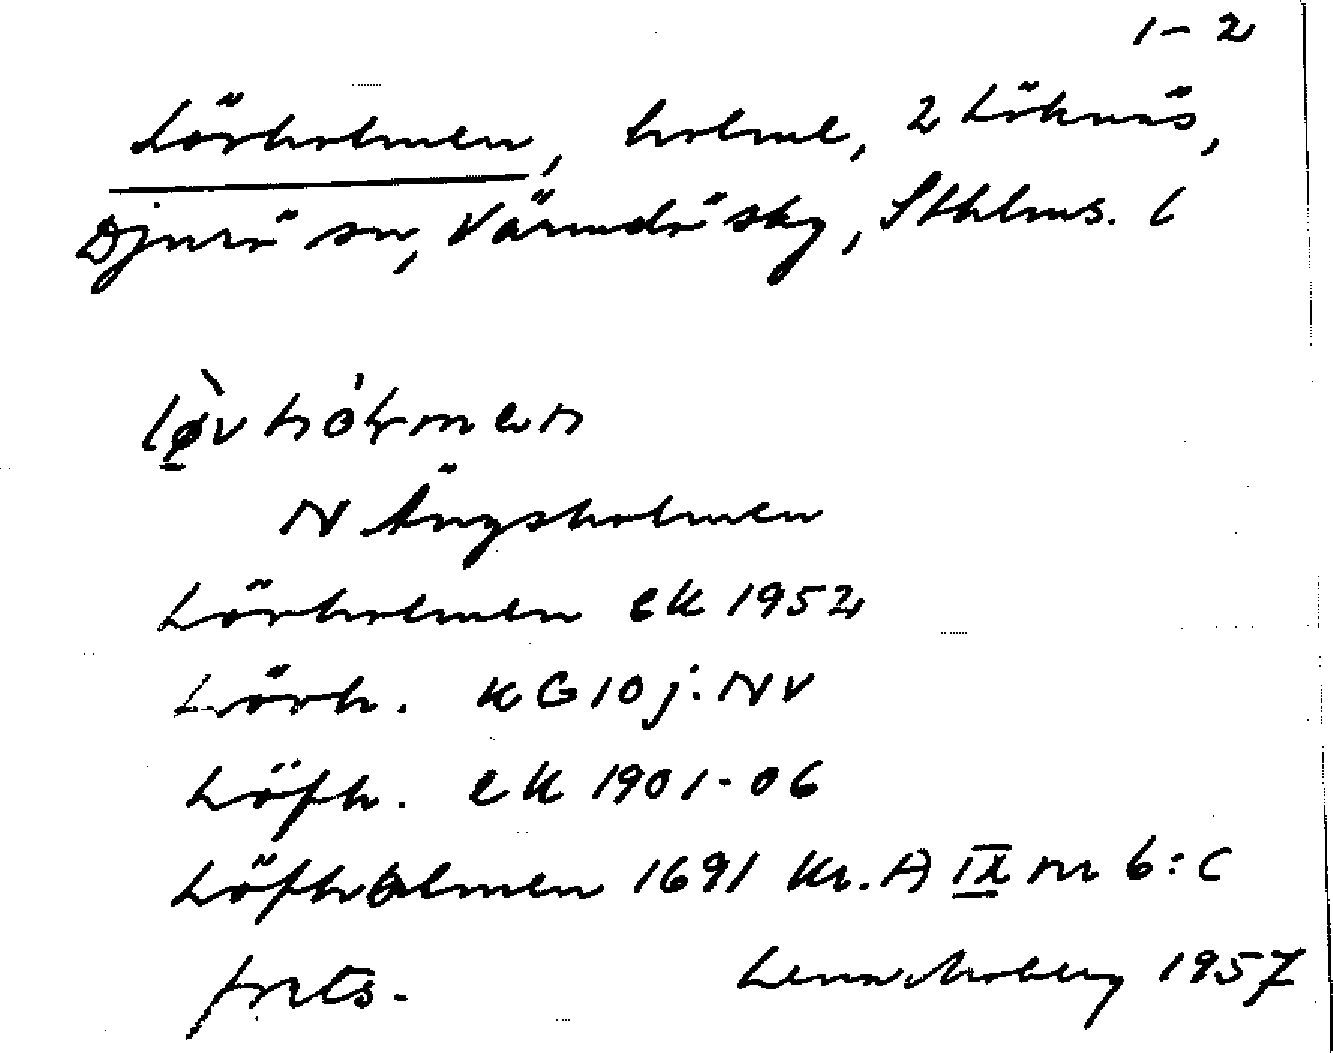 1-2
Lövholmen, holme, 2 Löknäs,
Djurö sn, Värmdö skg, Sthlms. l
lø̀vhól̥men
N Ängsholmen
Lövholmen EK 1952
Lövh. KG 10 j. NV
Löfh. EK 1901-06
Löfholmen 1691 Kr. A IX nr 6:C
forts. Lena Moberg 1957